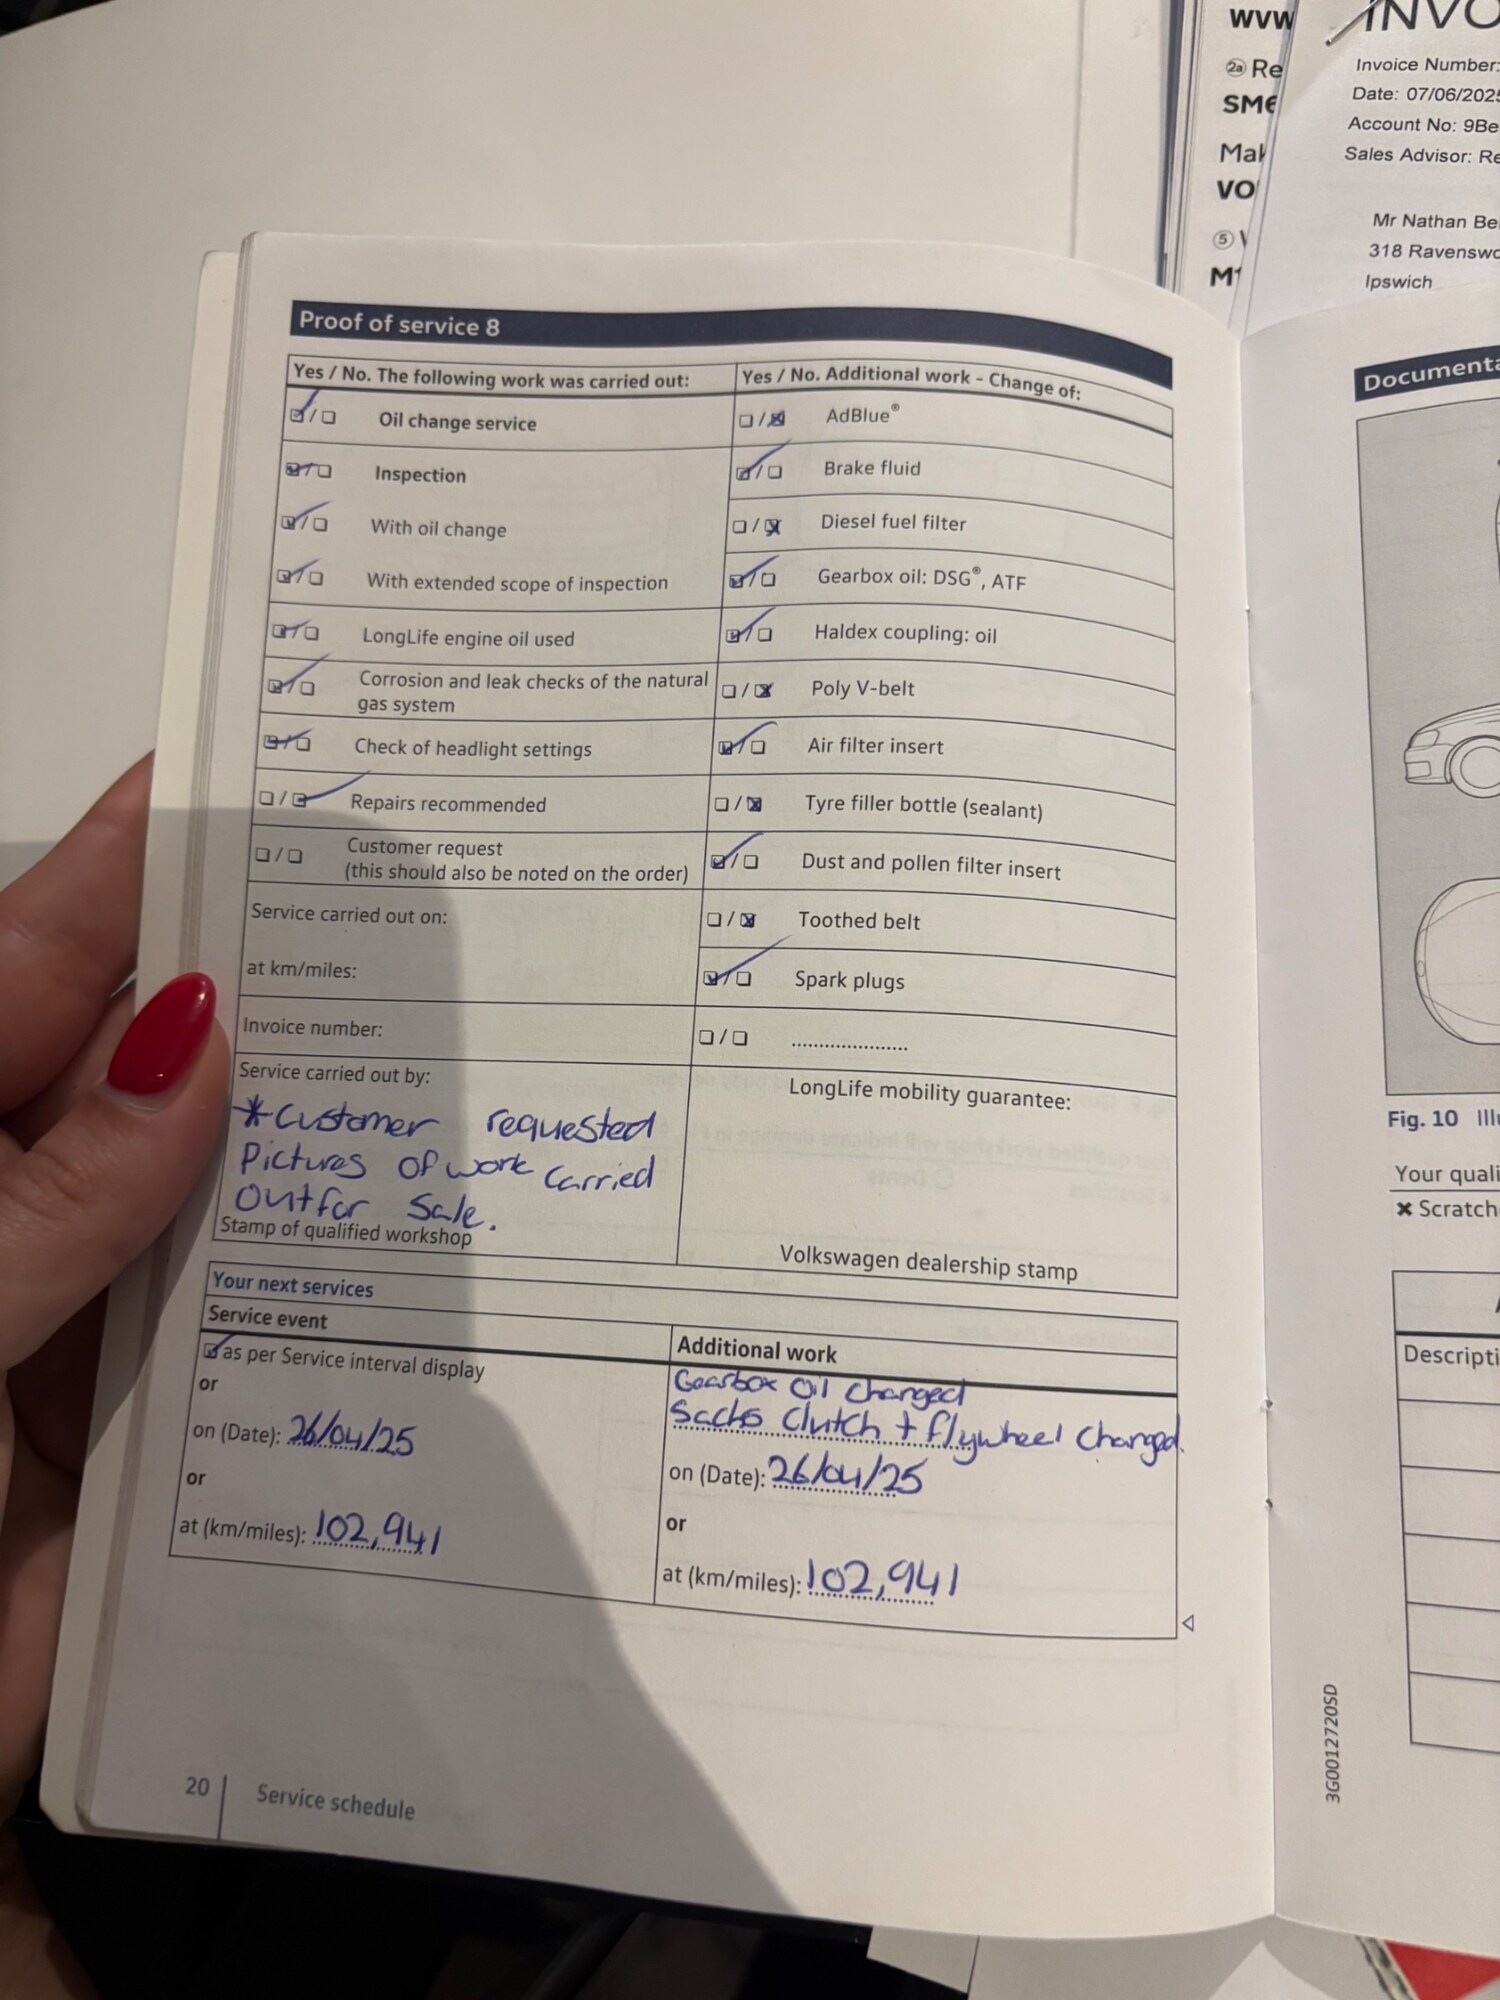 WVW
2a Re
SM6
Mak
VO
5 V
M1
INVO
Invoice Number:
Date: 07/06/2025
Account No: 9Be
Sales Advisor: Re
Mr Nathan Be
318 Ravenswo
Ipswich
Proof of service 8
Yes / No. The following work was carried out:
Oil change service
Inspection
With oil change
With extended scope of inspection
LongLife engine oil used
Corrosion and leak checks of the natural
gas system
Check of headlight settings
Repairs recommended
Customer request
(this should also be noted on the order)
Service carried out on:
at km/miles:
Invoice number:
Service carried out by:
*Customer requested
Pictures of work carried
out for sale.
Stamp of qualified workshop
Yes / No. Additional work - Change of:
AdBlue®
Brake fluid
Diesel fuel filter
Gearbox oil: DSG®, ATF
Haldex coupling: oil
Poly V-belt
Air filter insert
Tyre filler bottle (sealant)
Dust and pollen filter insert
Toothed belt
Spark plugs
....................
LongLife mobility guarantee:
Volkswagen dealership stamp
Your next services
Service event
as per Service interval display
or
on (Date): 26/04/25
or
at (km/miles): 102,941
Additional work
Gearbox oil changed
Sachs Clutch + flywheel changed.
on (Date): 26/04/25
or
at (km/miles): 102,941
20 Service schedule
Documenta
Fig. 10 Illu
Your quali
× Scratch
Descripti
3G0012720SD